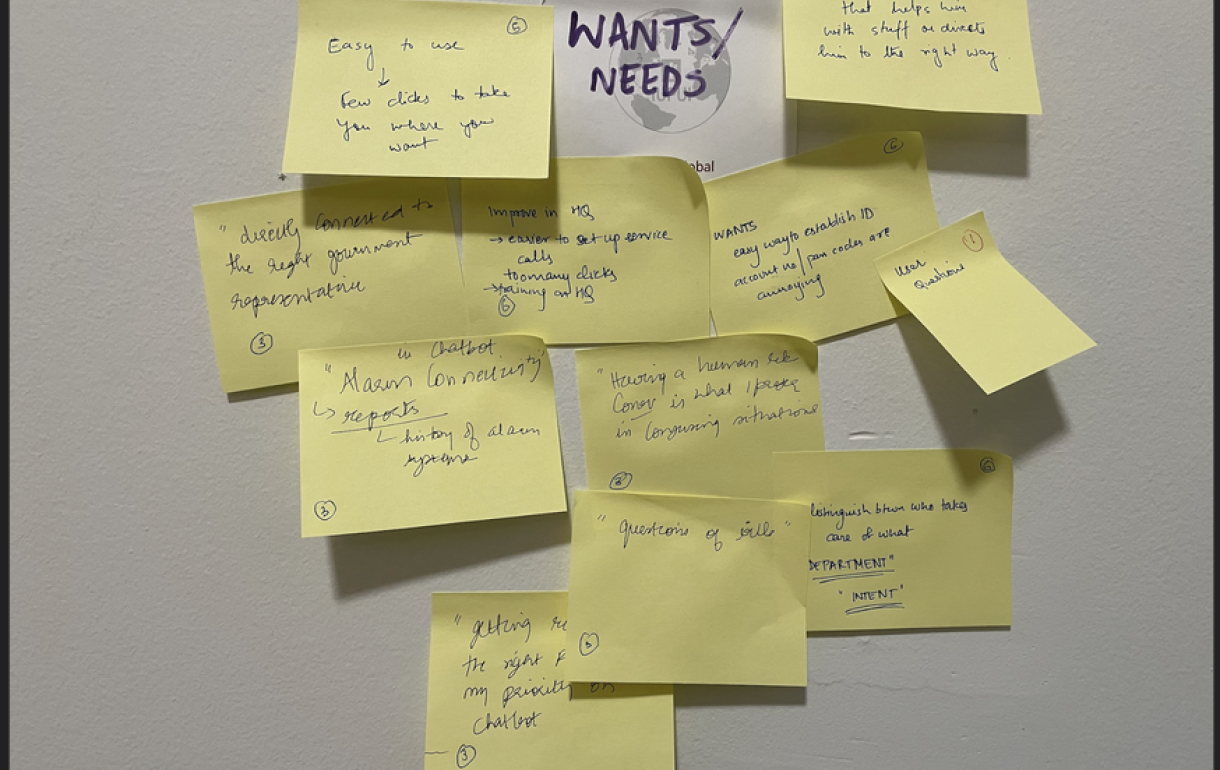 5
Easy to use
↓
Few clicks to take
you where you
want
WANTS/
NEEDS
obal
that helps him
with stuff or directs
him to the right way.
"directly connected to
the right government
representative
3
Improve in HQ
→ easier to set up service
calls
too many clicks
→ training on HQ
6
6
WANTS
easy way to establish ID
account no/pan codes are
annoying
1
User
Questions
in Chatbot
"Alarm Connectivity"
↳ reports
↳ history of alarm
systems
3
"Having a human
Conv is what I
in confusing situations
distinguish btwn who takes
care of what
DEPARTMENT"
"INTENT"
6
"questions of bills"
"getting
the right
my priority on
Chatbot
3